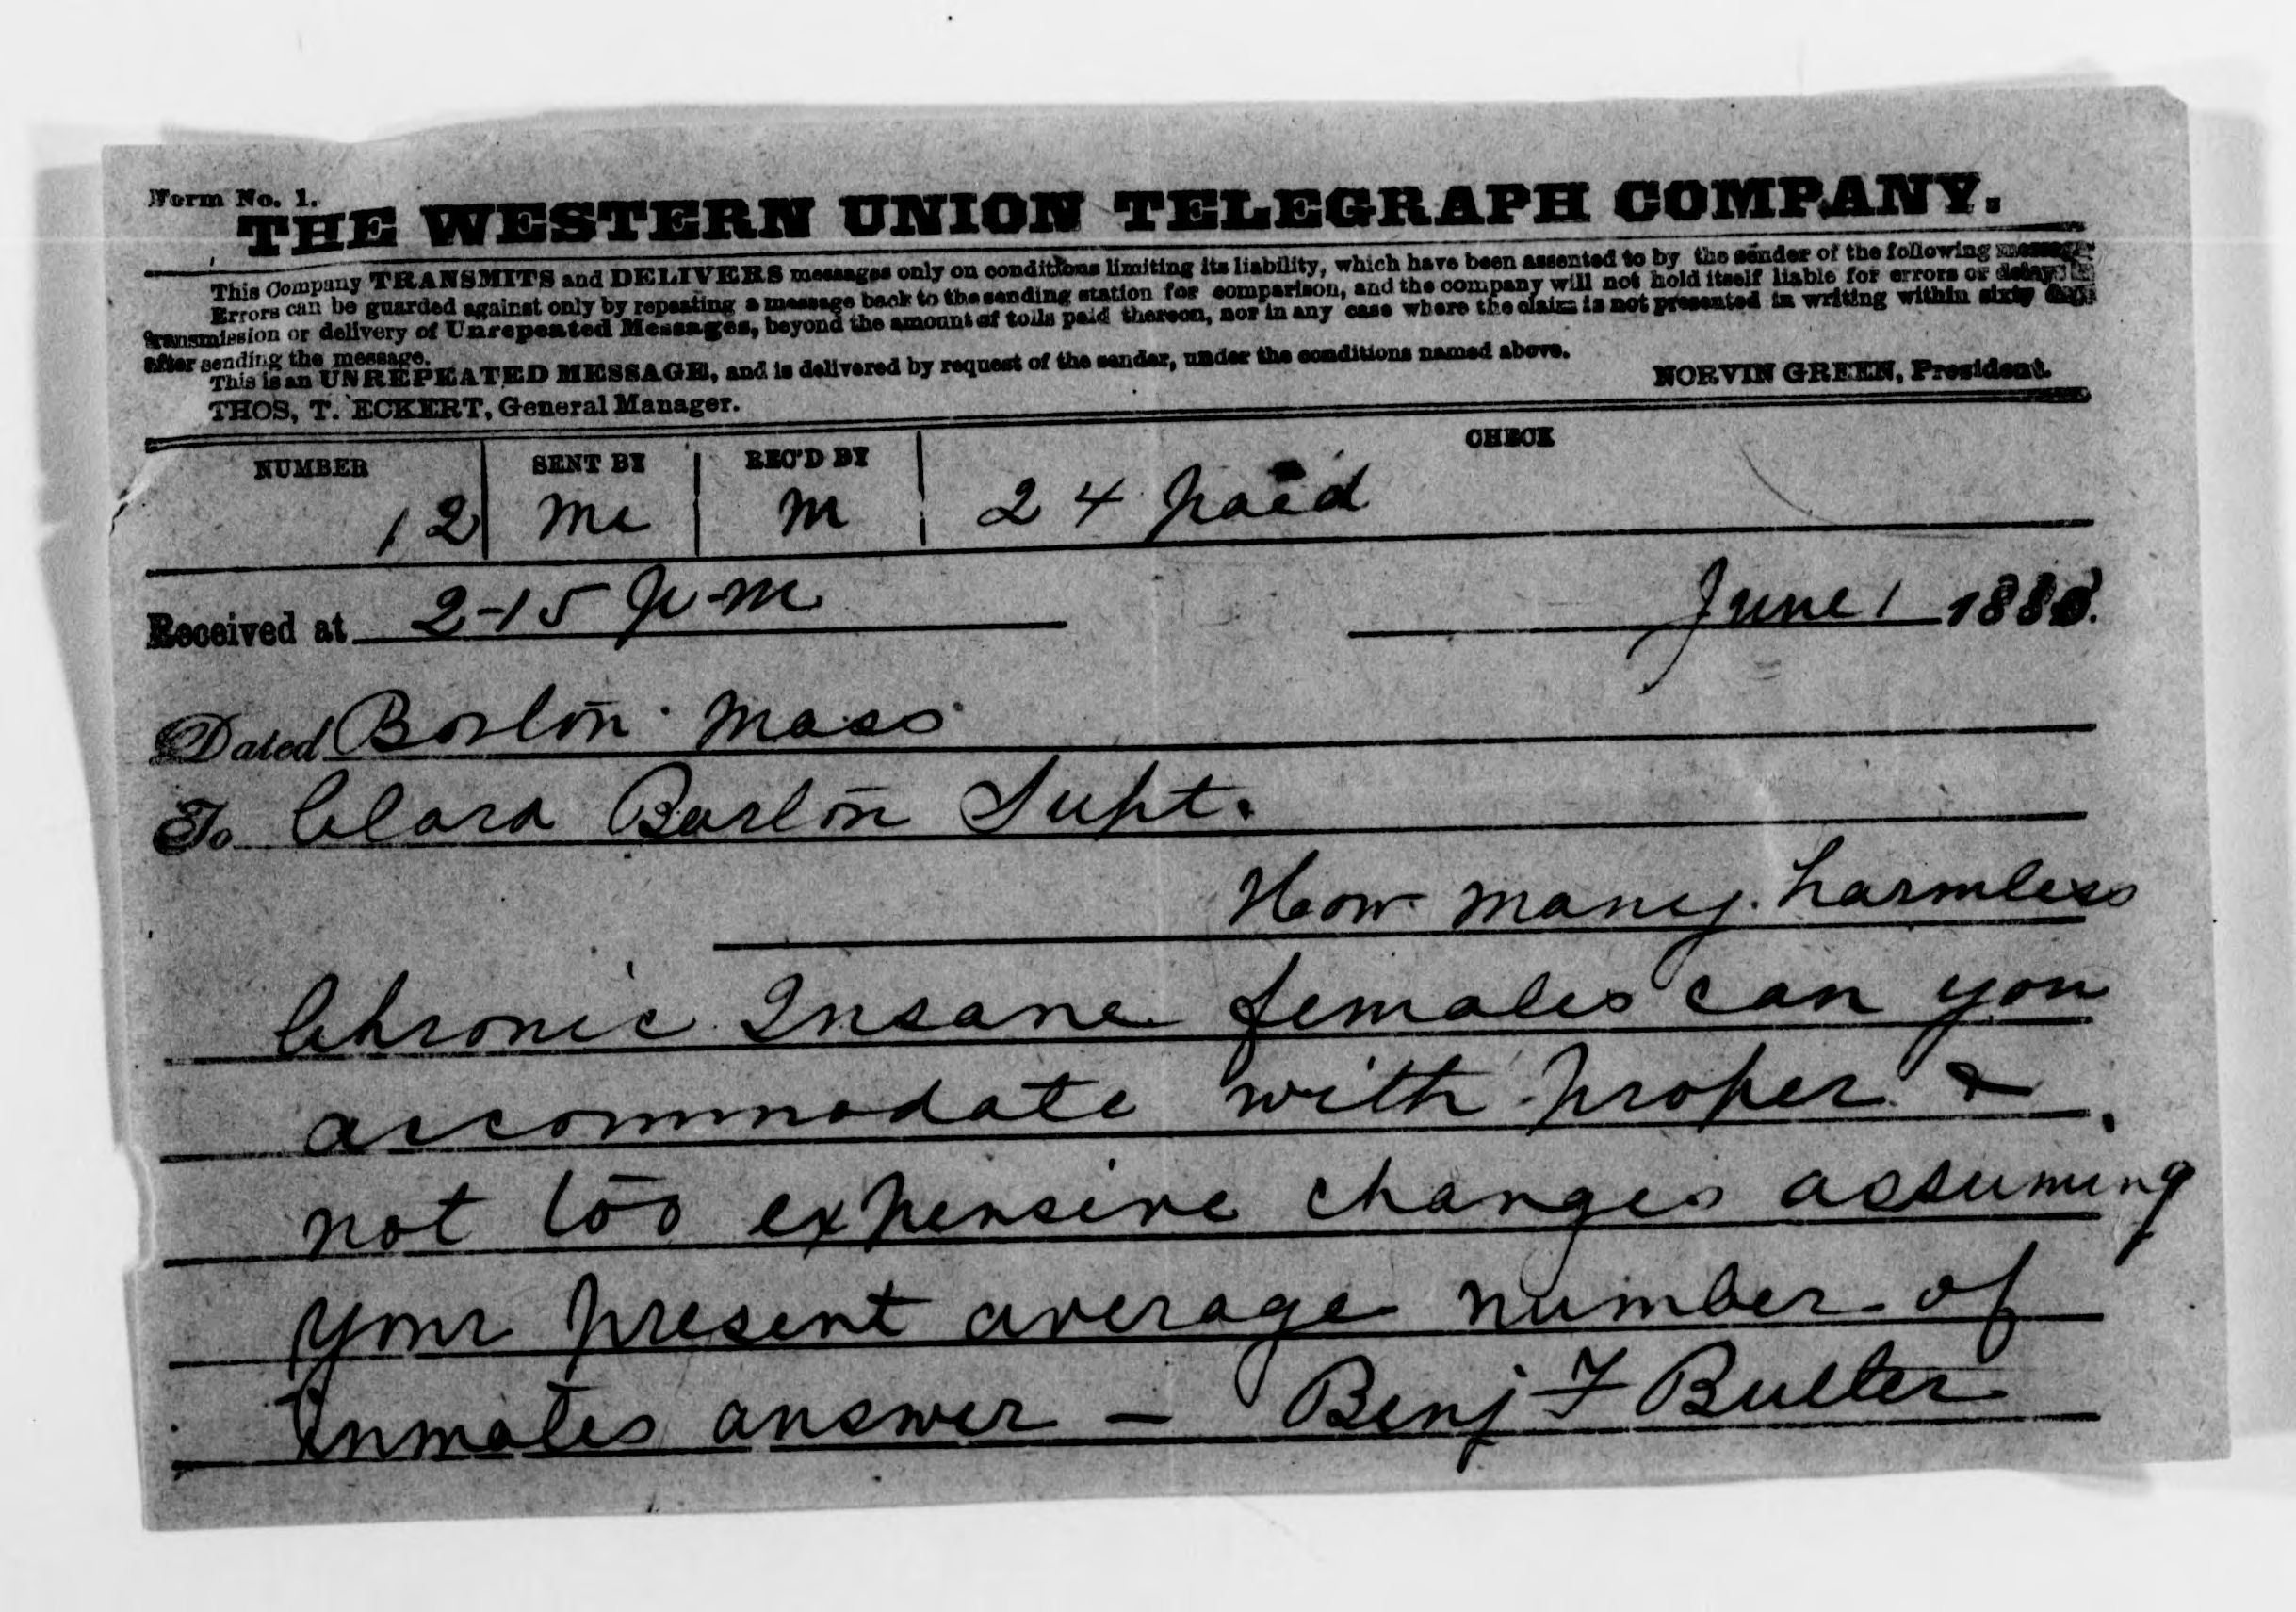 Form No. 1.
THE WESTERN UNION TELEGRAPH COMPANY.
This Company TRANSMITS and DELIVERS messages only on conditions limiting its liability, which have been assented to by the sender of the following message.
Errors can be guarded against only by repeating a message back to the sending station for comparison, and the company will not hold itself liable for errors or delays in
transmission or delivery of Unrepeated Messages, beyond the amount of tolls paid thereon, nor in any case where the claim is not presented in writing within sixty days
after sending the message.
This is an UNREPEATED MESSAGE, and is delivered by request of the sender, under the conditions named above.
THOS, T. ECKERT, General Manager. NORVIN GREEN, President.
NUMBER SENT BY REC'D BY CHECK
12 Mc M 24 paid
Received at 2-15 p-m June 1
Dated Boston Mass
To Clara Barton Supt.
How many harmless
Chronic Insane females can you
accommodate with proper &
not too expensive changes assuming
your present average number of
Inmates answer - Benj F Butler